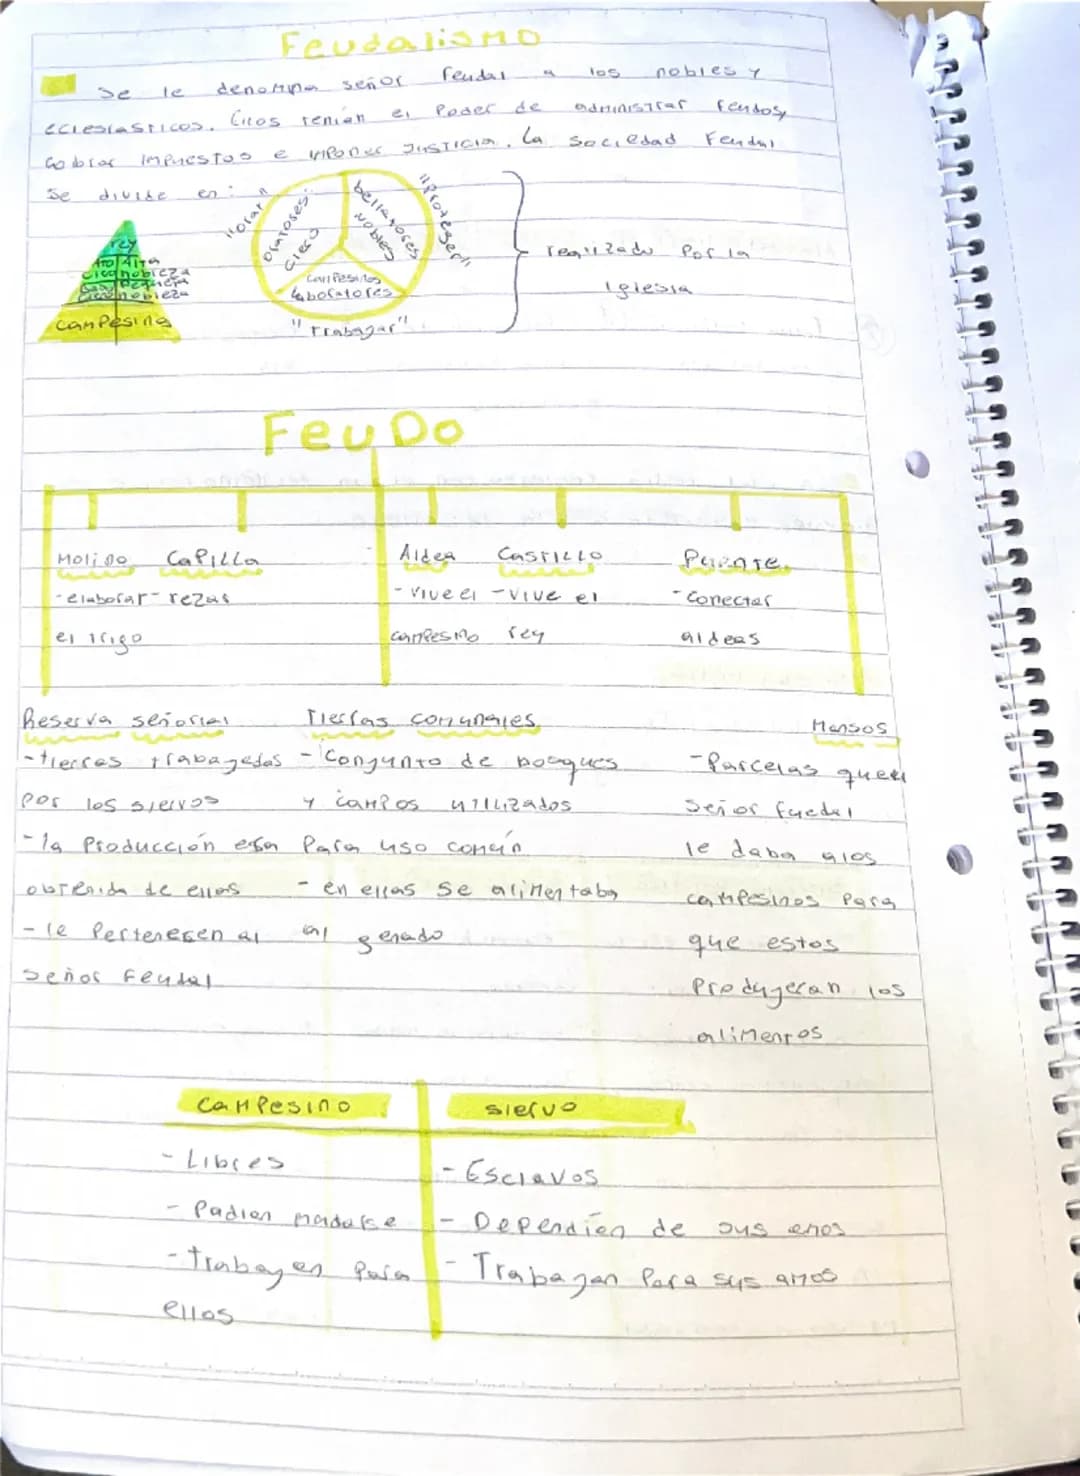 Feudalismo
Se le denomina señor feudal a los nobles y
eclesiasticos. Ellos tenían el Poder de administrar feudos,
cobrar impuestos e imponer justicia. La sociedad Feudal
se divide en:
rey
Alto Alta
Clero nobleza
Bajo Pequeña
Clero nobleza
campesino
"orar"
Oratores:
Clero
bellatores
Nobles
"Proteger"
campesinos
laboratores
"Trabagar"
realizado Por la
Iglesia
FeuDo
Molino Capilla Aldea Castillo Puente
-elaborar -rezar -vive el -vive el -Conectar
el trigo campesino rey aldeas
Reserva señorial Tierras comunales Mansos
-tierras trabagadas -Conjunto de bosques -Parcelas que el
por los siervos y campos utilizados señor fuedal
-la Producción era Para uso común le daba a los
obtenida de ellas - en ellas se alimentaba campesinos Para
-le Pertenecen al al genado que estos
señor Feudal Produgeran los
alimentos
Campesino siervo
-Libres -Esclavos
-Padian madarse -Dependíen de sus amos
-trabagen Para -Trabagan Para sus amos
ellos